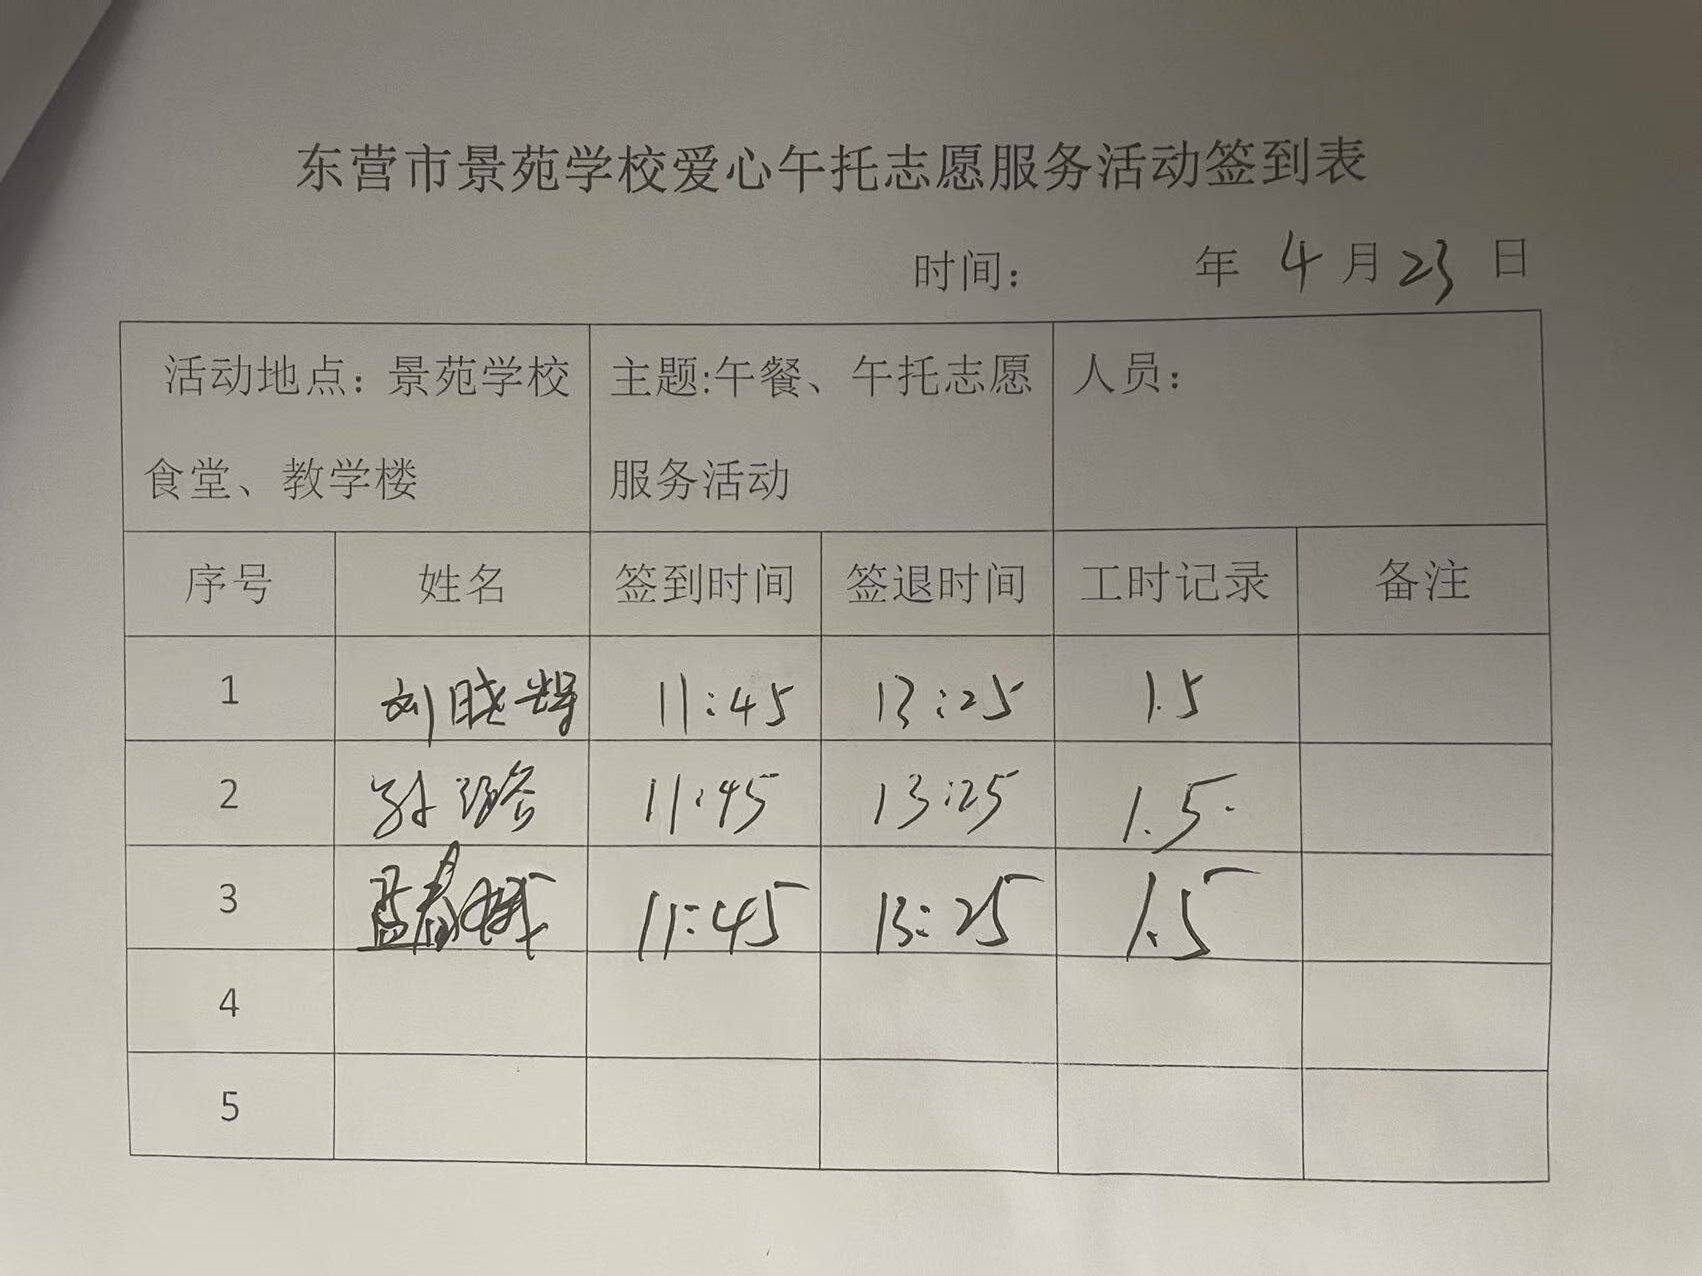 东营市景苑学校爱心午托志愿服务活动签到表
时间： 年 4 月 23 日
活动地点：景苑学校 主题:午餐、午托志愿 人员：
食堂、教学楼 服务活动
序号 姓名 签到时间 签退时间 工时记录 备注
1 刘晓辉 11:45 13:25 1.5
2 孙 11:45 13:25 1.5
3 11:45 13:25 1.5
4
5